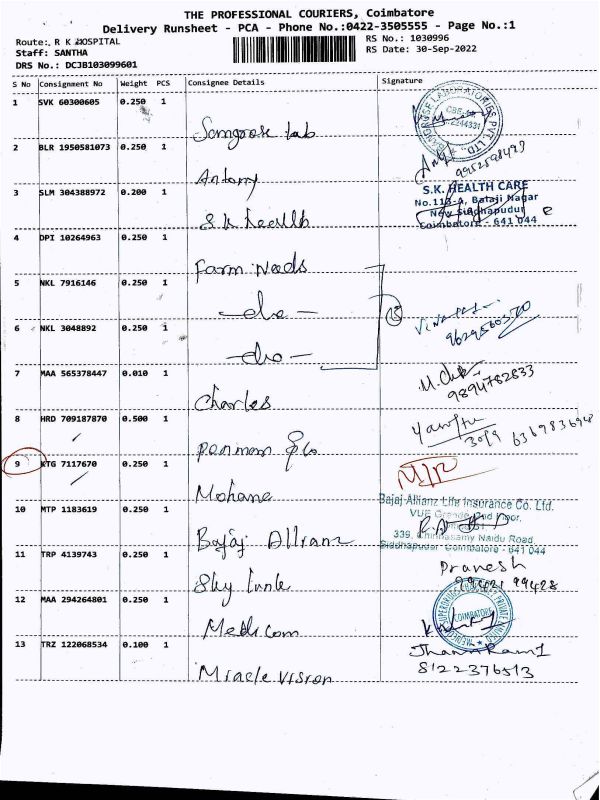 THE PROFESSIONAL COURIERS, Coimbatore
Delivery Runsheet - PCA - Phone No.:0422-3505555 - Page No.:1
Route: R K HOSPITAL
RS No.: 1030996
Staff: SANTHA
RS Date: 30-Sep-2022
DRS No.: DCJB103099601
S No Consignment No Weight PCS Consignee Details Signature
1 SVK 60300605 0.250 1
2 BLR 1950581073 0.250 1
Antony
3 SLM 304388972 0.200 1
S.K. HEALTH CARE
No.113-A, Balaji Nagar
New Siddhapudur
Coimbatore - 641 044
S k Health
4 DPI 10264963 0.250 1
Farm Needs
5 NKL 7916146 0.250 1
-do-
15
6 NKL 3048892 0.250 1
-do-
7 MAA 565378447 0.010 1
9894782833
Charles
8 HRD 709187870 0.500 1
30/9
Penman & Co
9 KTG 7117670 0.250 1
Mohana
10 MTP 1183619 0.250 1
Bajaj Allianz Life Insurance Co. Ltd.
VUE Grande, 2nd Floor,
339, Chinnasamy Naidu Road
Siddhapudur Coimbatore - 641 044
Bajaj Allianz
11 TRP 4139743 0.250 1
Pravesh
Sky Link
12 MAA 294264801 0.250 1
COIMBATORE
Medicom
13 TRZ 122068534 0.100 1
8122376513
Miracle vision